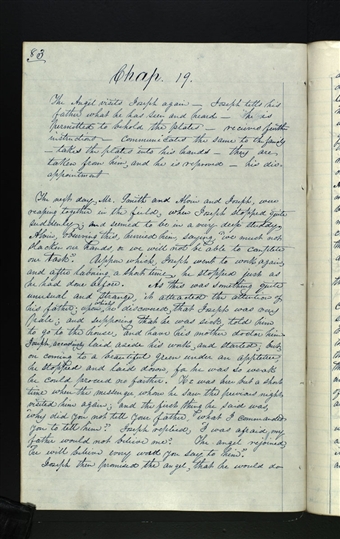 83
Chap. 19.
The Angel visits Joseph again — Joseph tells his
father what he has seen and heard — He is
permitted to behold the plates — receives further
instructions — Communicates the same to the family
— takes the plates into his hands — they are
taken from him, and he is reproved — his dis-
appointment
The next day, Mr. Smith and Alvin and Joseph, were
reaping together in the field, when Joseph stopped quite
suddenly, and seemed to be in a very deep study.
Alvin, observing this, hurried him, saying, "we must not
slacken our hands or we will not be able to complete
our task". Upon which Joseph went to work again,
and after laboring a short time, he stopped just as
he had done before. As this was something quite
unusual and strange, it attracted the attention of
his father; upon which he discovered, that Joseph was very
pale; and supposing that he was sick, told him
to go to the house, and have his mother doctor him
Joseph, accordingly laid aside his work, and started, but,
on coming to a beautiful green under an appletree,
he stopped and laid down, for he was so weak
he could proceed no farther. He was here but a short
time when the messenger whom he saw the previous night,
visited him again; and the first thing he said was,
why did you not tell your father, what I commanded
you to tell him?. Joseph replied, I was afraid, my
father would not believe me". The angel rejoined,
"he will believe every word you say to him".
Joseph then promised the angel, that he would do